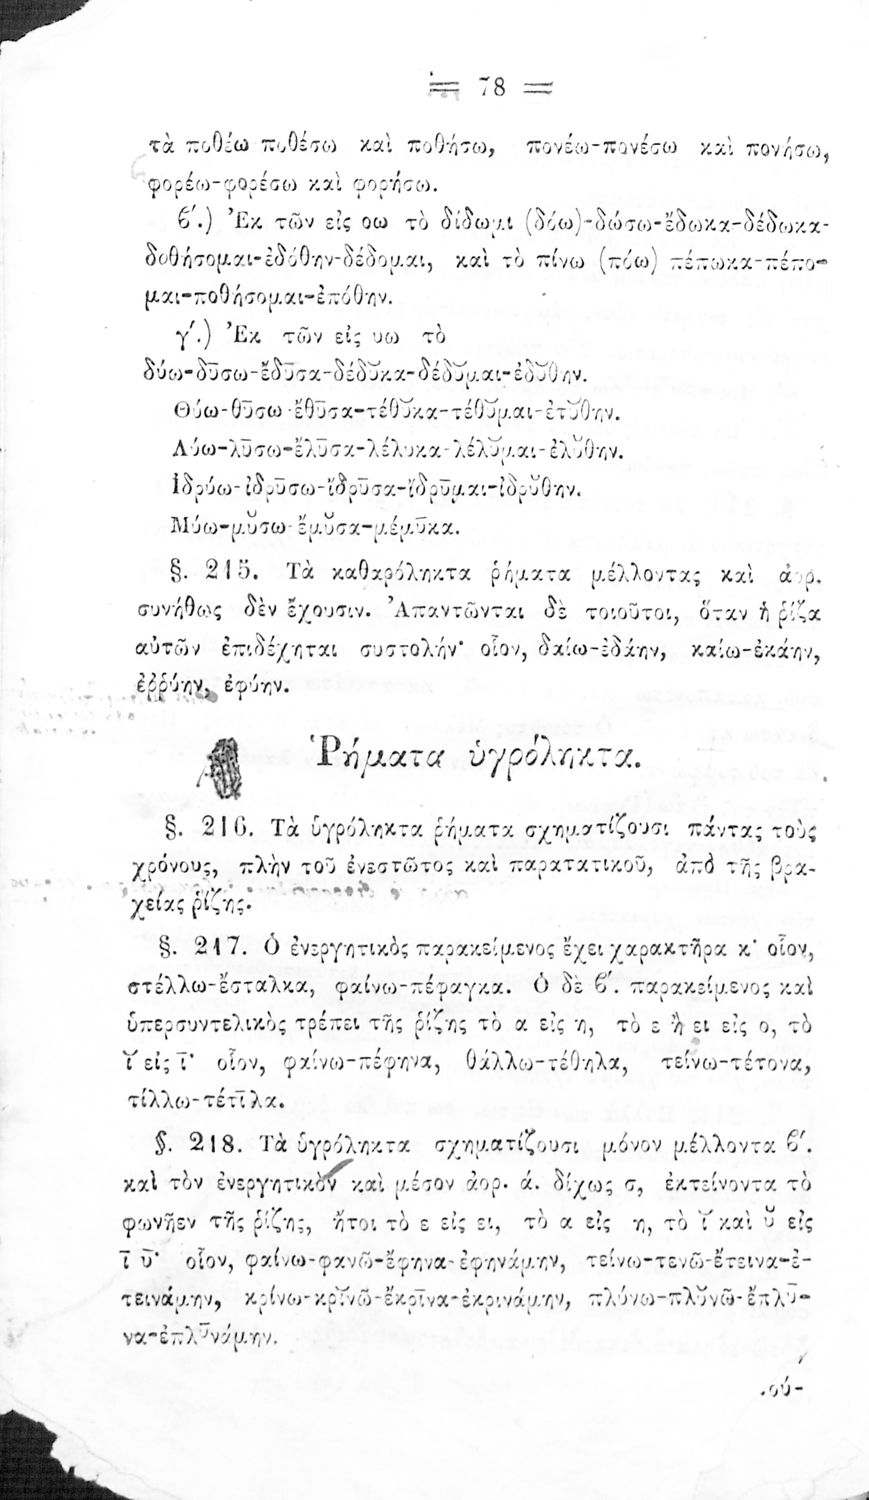 = 78 =
τὰ ποθέω ποθέσω καὶ ποθήσω, πονέω-πονέσω καὶ πονήσω,
φορέω-φορέσω καὶ φορήσω.
ϐ΄.) Ἐκ τῶν εἰς οω τὸ δίδωμι (δόω)-δώσω-ἔδωκα-δέδωκα-
δοθήσομαι-ἐδόθην-δέδομαι, καὶ τὸ πίνω (πόω) πέπωκα-πέπο-
μαι-ποθήσομαι-ἐπόθην.
γ΄.) Ἐκ τῶν εἰς υω τὸ
δύω-δῡσω-ἔδῡσα-δέδῠκα-δέδῠμαι-ἐδῠθην.
Θύω-θῡσω-ἔθῡσα-τέθῠκα-τέθῠμαι-ἐτῠθην.
Λύω-λῡσω-ἔλῡσα-λέλυκα-λέλῠμαι-ἐλῠθην.
Ἱδρύω-ἱδρῡσω-ἵδρῡσα-ἵδρῡμαι-ἱδρῠθην.
Μύω-μῠσω-ἔμῠσα-μέμῡκα.
§. 215. Τὰ καθαρόληκτα ῥήματα μέλλοντας καὶ ἀορ.
συνήθως δὲν ἔχουσιν. Ἀπαντῶνται δὲ τοιοῦτοι, ὅταν ἡ ῥίζα
αὐτῶν ἐπιδέχηται συστολήν· οἷον, δαίω-ἐδάην, καίω-ἐκάην,
ἐῤῥύην, ἐφύην.
Ῥήματα ὑγρόληκτα.
§. 216. Τὰ ὑγρόληκτα ῥήματα σχηματίζουσι πάντας τοὺς
χρόνους, πλὴν τοῦ ἐνεστῶτος καὶ παρατατικοῦ, ἀπὸ τῆς βρα-
χείας ῥίζης.
§. 217. Ὁ ἐνεργητικὸς παρακείμενος ἔχει χαρακτῆρα κ· οἷον,
στέλλω-ἔσταλκα, φαίνω-πέφαγκα. Ὁ δὲ ϐ΄. παρακείμενος καὶ
ὑπερσυντελικὸς τρέπει τῆς ῥίζης τὸ α εἰς η, τὸ ε ἢ ει εἰς ο, τὸ
ῐ εἰς ῑ· οἷον, φαίνω-πέφηνα, θάλλω-τέθηλα, τείνω-τέτονα,
τίλλω-τέτῑλα.
§. 218. Τὰ ὑγρόληκτα σχηματίζουσι μόνον μέλλοντα ϐ΄.
καὶ τὸν ἐνεργητικὸν καὶ μέσον ἀορ. ά. δίχως σ, ἐκτείνοντα τὸ
φωνῆεν τῆς ῥίζης, ἤτοι τὸ ε εἰς ει, τὸ α εἰς η, τὸ ῐ καὶ ῠ εἰς
ῑ ῡ· οἷον, φαίνω-φανῶ-ἔφηνα-ἐφηνάμην, τείνω-τενῶ-ἔτεινα-ἐ-
τεινάμην, κρίνω-κρῐνῶ-ἔκρῑνα-ἐκρινάμην, πλύνω-πλῠνῶ-ἔπλῡ-
να-ἐπλῡνάμην.
ού-